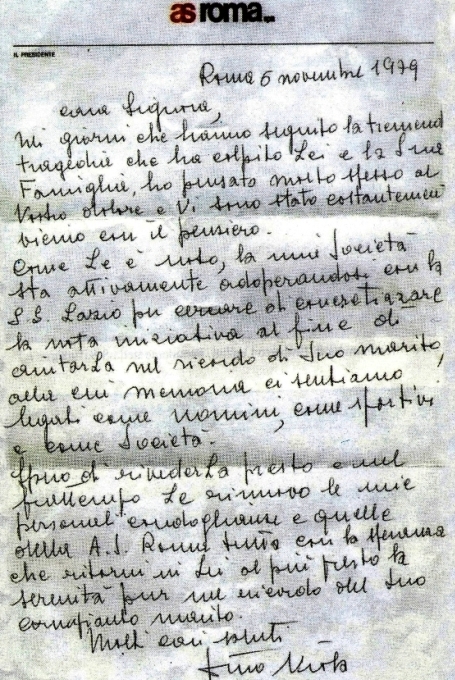 as roma
IL PRESIDENTE
Roma 6 novembre 1979
cara Signora,
nei giorni che hanno seguito la tremenda
tragedia che ha colpito Lei e la Sua
Famiglia, ho pensato molto spesso al
Vostro dolore e Vi sono stato costantemente
vicino con il pensiero.
Come Le è noto, la mia Società
sta attivamente adoperandosi con la
S.S. Lazio per cercare di concretizzare
la nota iniziativa al fine di
aiutarLa nel ricordo di Suo marito,
alla cui memoria ci sentiamo
legati come uomini, come sportivi
e come Società.
Spero di rivederLa presto e nel
frattempo Le rinnovo le mie
personali condoglianze e quelle
della A.S. Roma tutta con la speranza
che ritorni in Lei al più presto la
serenità pur nel ricordo del Suo
compianto marito.
Molti cari saluti